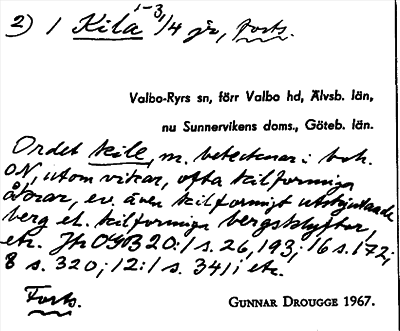 2) 1 Kila 1-3 1/4 jr, forts.
Valbo-Ryrs sn, förr Valbo hd, Älvsb. län,
nu Sunnervikens doms., Göteb. län.
Ordet kile, m. betecknar i boh.
ON, utom vikar, ofta kilformiga
åkrar, ev. även kilformigt utskjutande
berg el. kilformiga bergsklyftor,
etc. Jfr OGB 20:1 s. 26, 193; 16 s. 172;
8 s. 320; 12:1 s. 341; etc.
Forts.
GUNNAR DROUGGE 1967.